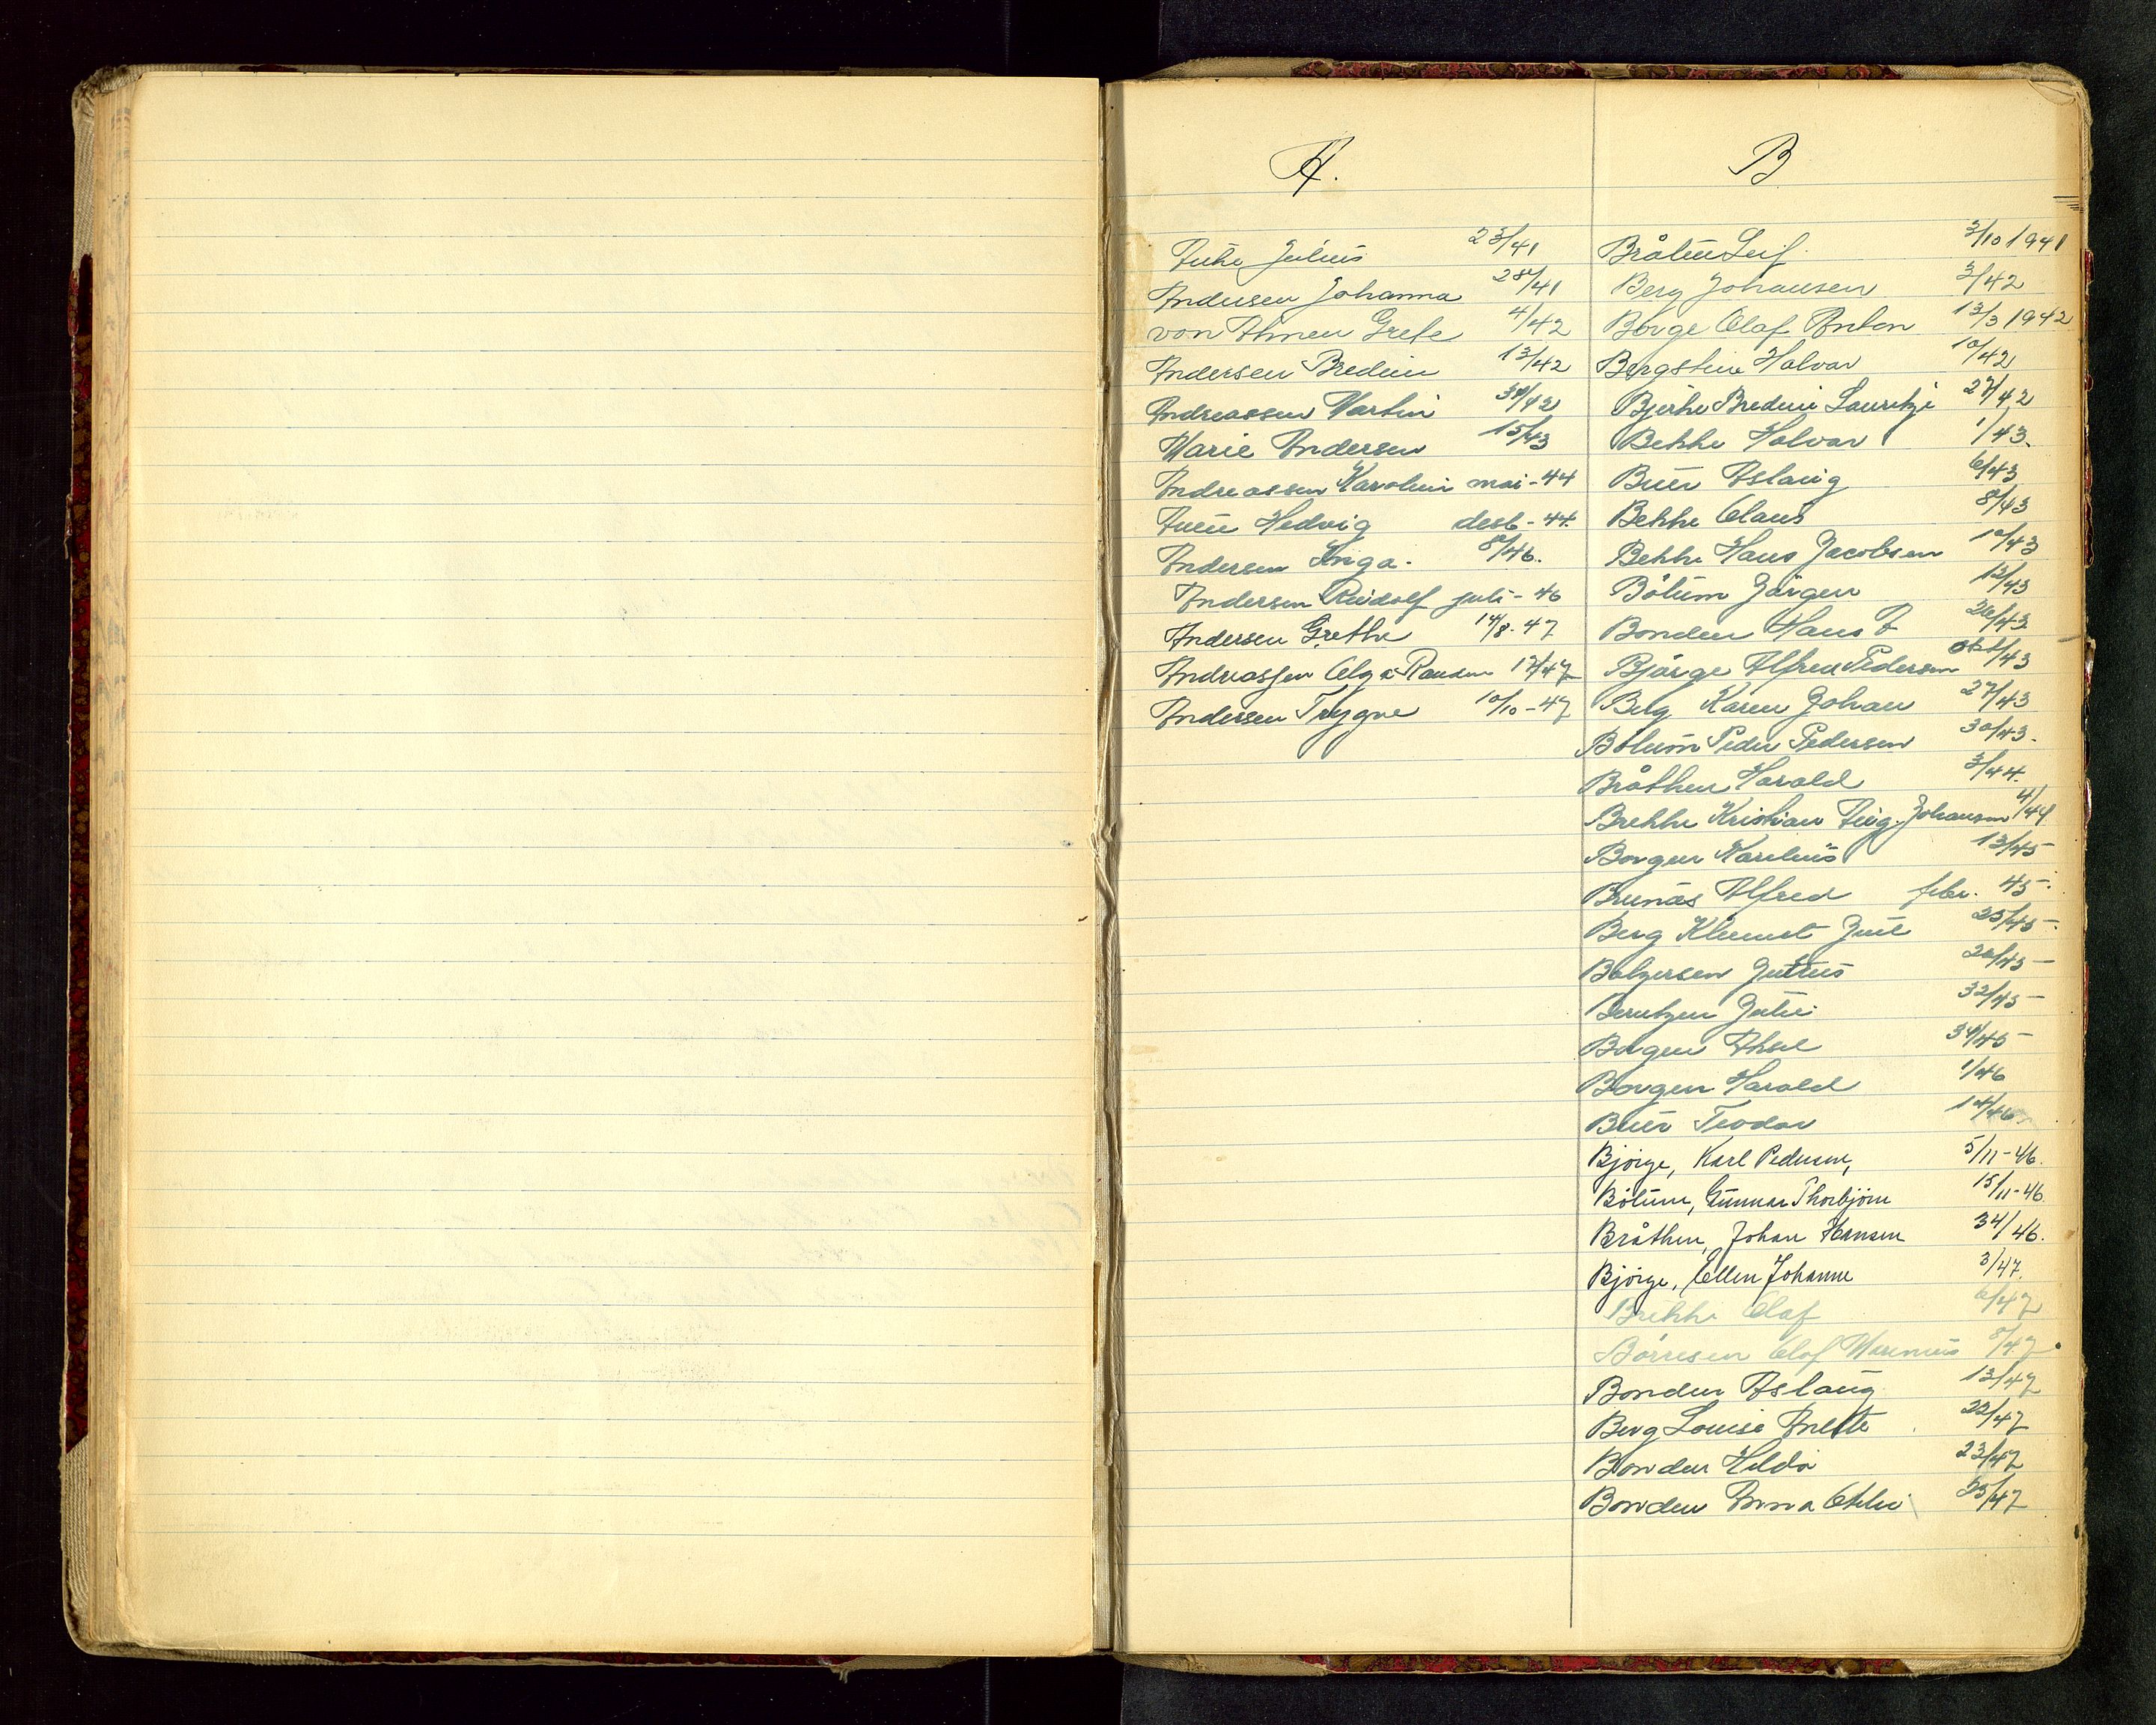 A.
Julius 23/41
Andersen Johanna 28/41
von Ahnen Grete 4/42
Andersen Bredine 13/42
Andreassen Martin 34/42
Marie Andersen 15/43
Andreassen Karoline mai - 44
Hedvig desb - 44.
Andersen Inga. 8/46.
Andersen Rudolf juli - 46
Andersen Grethe 14/8 - 47
Andreassen Olga 17/47
Andersen Trygve 10/10 - 47
B
Bråten Leif. 3/10 1941
Berg Johansen 3/42
Borge Olaf Anton 13/3 1942
Bergstine Halvar 10/42
Bjerke Bredine Lauritze 27/42
Bekke Halvar 1/43.
Buer Aslaug 6/43
Bekke Claus 8/43
Bekke Hans Jacobsen 10/43
Bölum Jörgen 12/43
Bonden Hans 26/43
Björge Alfred Pedersen okt/43
Berg Karen Johan 27/43
Bölum Peder Pedersen 30/43.
Bråthen Harald 3/44.
Brekke Kristian Johansen 4/44
Borgen Karelius 13/45
Brunæs Alfred febr. 45.
Berg Klemet Juul 25/45
Bolgersen Julius 20/45
Berntzen Julie 32/45
Borgen Aksel 34/45
Borgen Harald 1/46
Buer Teodor 14/46
Bjørge, Karl Pedersen, 5/11-46.
Bölum, Gunnar Thorbjörn 15/11-46.
Bråthen, Johan Hansen 34/46.
Bjørge, Ellen Johanne 3/47.
Brekke Olaf 6/47
Börresen Olaf Marinius 8/47
Bonden Aslaug 13/47
Berg Louise Anette 22/47
Bonden Hilda 23/47
Bonden Anna Otilie 25/47